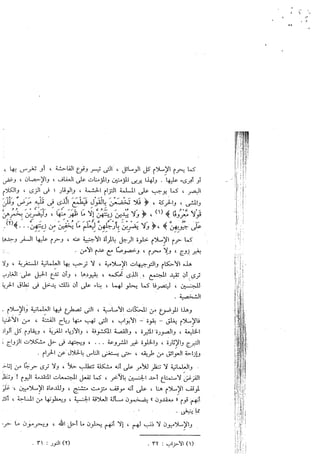 كما يحرم الإسلام كل الوسائل ، التي تيسر وقوع الفاحشة ، أو تغري بها ،
أو تؤدي عليها . ولهذا يربي المؤمنين والمؤمنات على العفاف ، والإحصان ، وغض
البصر ، كما يوجب على المسلمة التزام الحشمة ، والوقار : في الزي ، والكلام
والمشي ، والحركة ، ﴿ فَلَا تَخْضَعْنَ بِالْقَوْلِ فَيَطْمَعَ الَّذِي فِي قَلْبِهِ مَرَضٌ وَقُلْنَ
قَوْلًا مَعْرُوفًا ﴾ (١) ، ﴿ وَلَا يُبْدِينَ زِينَتَهُنَّ إِلَّا مَا ظَهَرَ مِنْهَا ، وَلْيَضْرِبْنَ بِخُمُرِهِنَّ
عَلَى جُيُوبِهِنَّ ﴾ ، ﴿ وَلَا يَضْرِبْنَ بِأَرْجُلِهِنَّ لِيُعْلَمَ مَا يُخْفِينَ مِنْ زِينَتِهِنَّ . . . ﴾ (٢)
كما حرم الإسلام خلوة الرجل بالمرأة الأجنبية عنه ، وحرم عليها السفر وحدها
بغير زوج ، ولا محرم ، وخصوصًا مع عدم الأمن .
هذه الأحكام والتوجيهات الإسلامية ، لا ترحب بها العلمانية المستغربة ، ولا
ترى أن تقيد المجتمع ، الذي تحكمه ، بقيودها ، وأن تدع الحبل على الغارب
للجنسين ، ليتصرفا كما يحلو لهما ، بناء على أن ذلك يدخل في نطاق الحرية
الشخصية .
وهذا الموضوع من المجالات الأساسية ، التي تصطرع فيها العلمانية والإسلام .
فالإسلام يغلق - بقوة - الأبواب ، التي تهب منها رياح الفتنة ، من الأغنية
الخليعة ، والصورة المثيرة ، والقصة المكشوفة ، والأزياء المغرية ، ويقاوم كل ألوان
التبرج والإثارة ، والخلوة غير المشروعة ... ويجتهد في حل مشكلات الزواج ،
وإزاحة العوائق من طريقه ، حتى يستغني الناس بالحلال عن الحرام .
والعلمانية لا تنظر للأمر على أنه مشكلة تتطلب حلاً ، ولا ترى حرجًا من إتاحة
الفرص لاستمتاع أحد الجنسين بالآخر ، كما تفعل المجتمعات المتقدمة اليوم ! وتنظر
لموقف الإسلام هنا ، على أنه موقف متزمت متشنج ، ولدعاة الإسلاميين ، على
أنهم قوم « معقدون » يضخمون مسألة العلاقة الجنسية ، ويعطونها من المساحة ، أكثر
مما ينبغي .
والإسلاميون لا ذنب لهم ، إلا أنهم يحلون ما أحل الله ، ويحرمون ما حرم
(١) الأحزاب : ٣٢ .
(٢) النور : ٣١ .